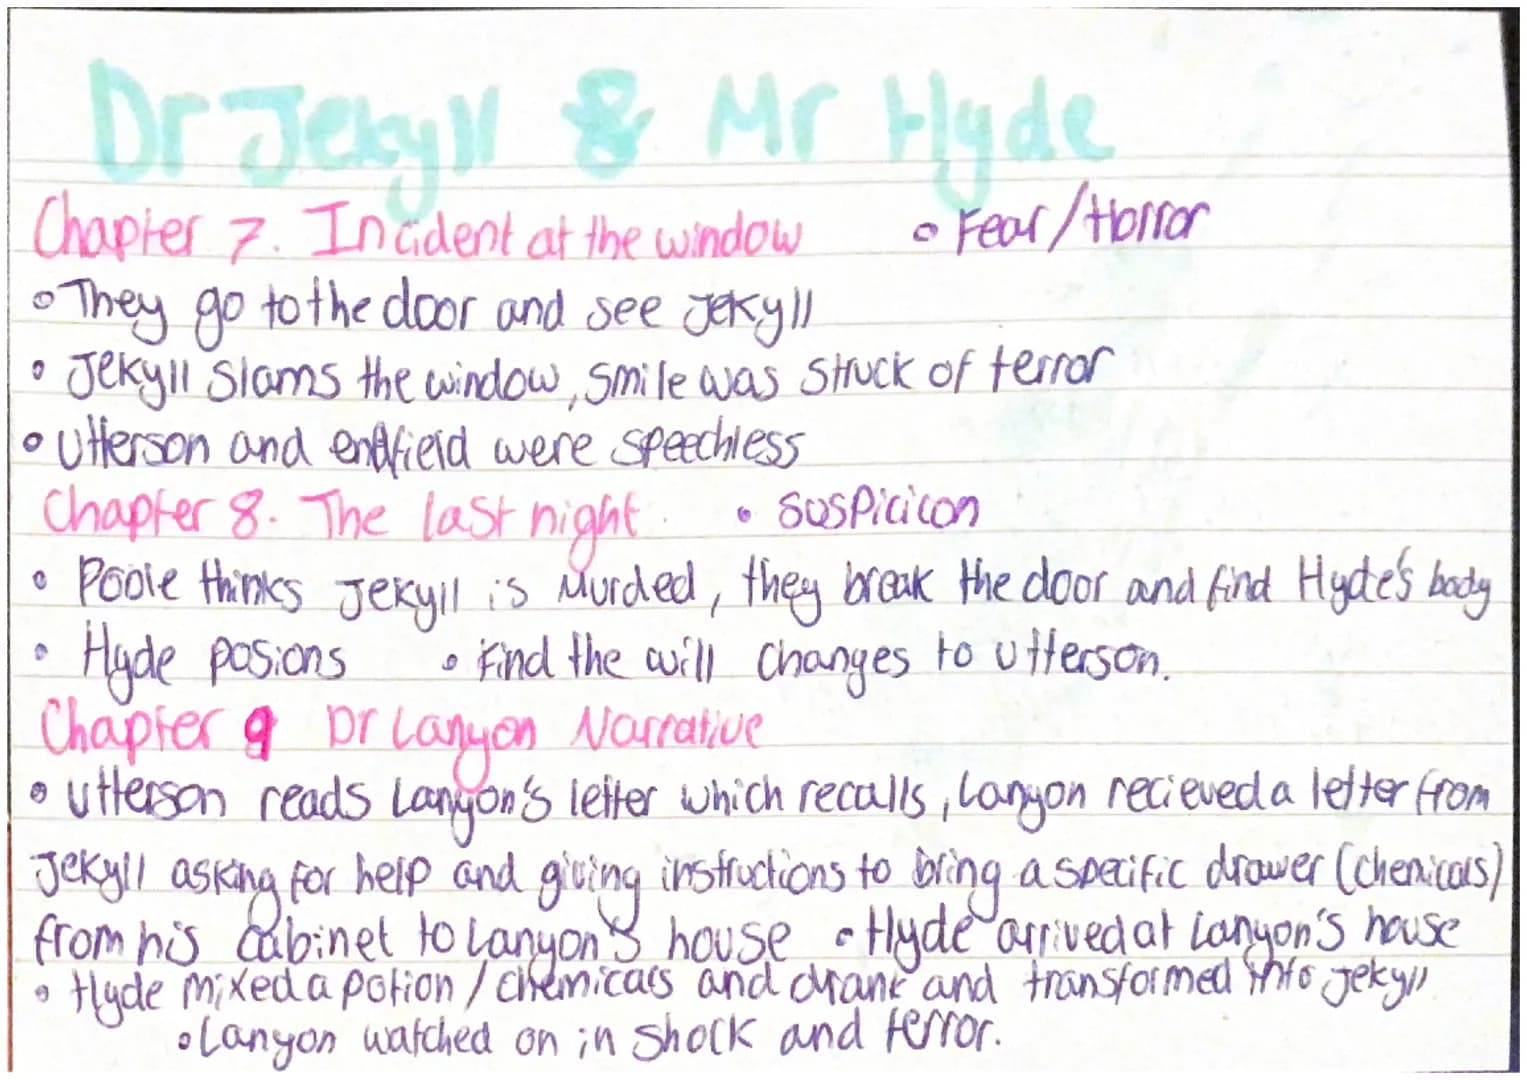 Dr Jekyll & Mr Hyde
Chapter 7. Incident at the window • Fear/Horror
• They go to the door and see Jekyll
• Jekyll slams the window, smile was struck of terror
• Utterson and endfield were speechless
Chapter 8. The last night. • Suspicicon
• Poole thinks Jekyll is Murded, they break the door and find Hyde's body
• Hyde posions • Find the will changes to Utterson.
Chapter 9 Dr Lanyon Narrative
• Utterson reads Lanyon's letter which recalls, Lanyon recieved a letter from
Jekyll asking for help and giving instructions to bring a specific drawer (chemicals)
from his cabinet to Lanyon's house • Hyde arrived at Lanyon's house
• Hyde mixed a potion / chemicals and drank and transformed into Jekyll
• Lanyon watched on in shock and terror.